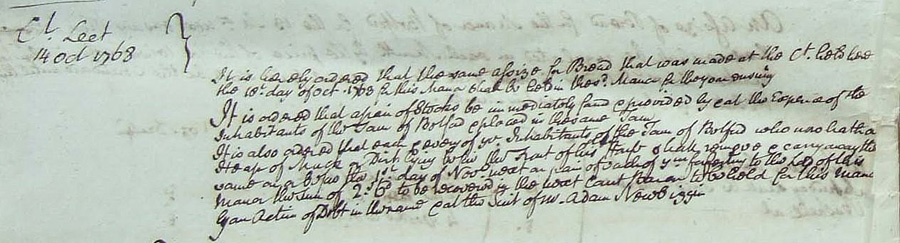 Ct. Leet
14 Oct 1768
It is hereby ordered that the same assize for Bread that was made at the Ct. held here
the 10th. day of Oct. 1768 for this Manor shall be held in the sd. Manor for the year ensuing
It is ordered that a pair of Stocks be immediately and provided by & at the Expence of the
Inhabitants of the Town of Belford & placed in the same Town
It is also ordered that each & every of ye. Inhabitants of the Town of Belford who now hath a
Heap of Muck or Dirt lying before the Front of his House shall remove & carry away the
same on or before the 1st. day of Novr. next on pain of each of ym forfeiting to the Lord of this
Manor the Sum of 2s. 6d to be recovered in the next Court Baron to be held for this Manor
by an Action of Debt in the name & at the Suit of Mr. Adam Newbiggin